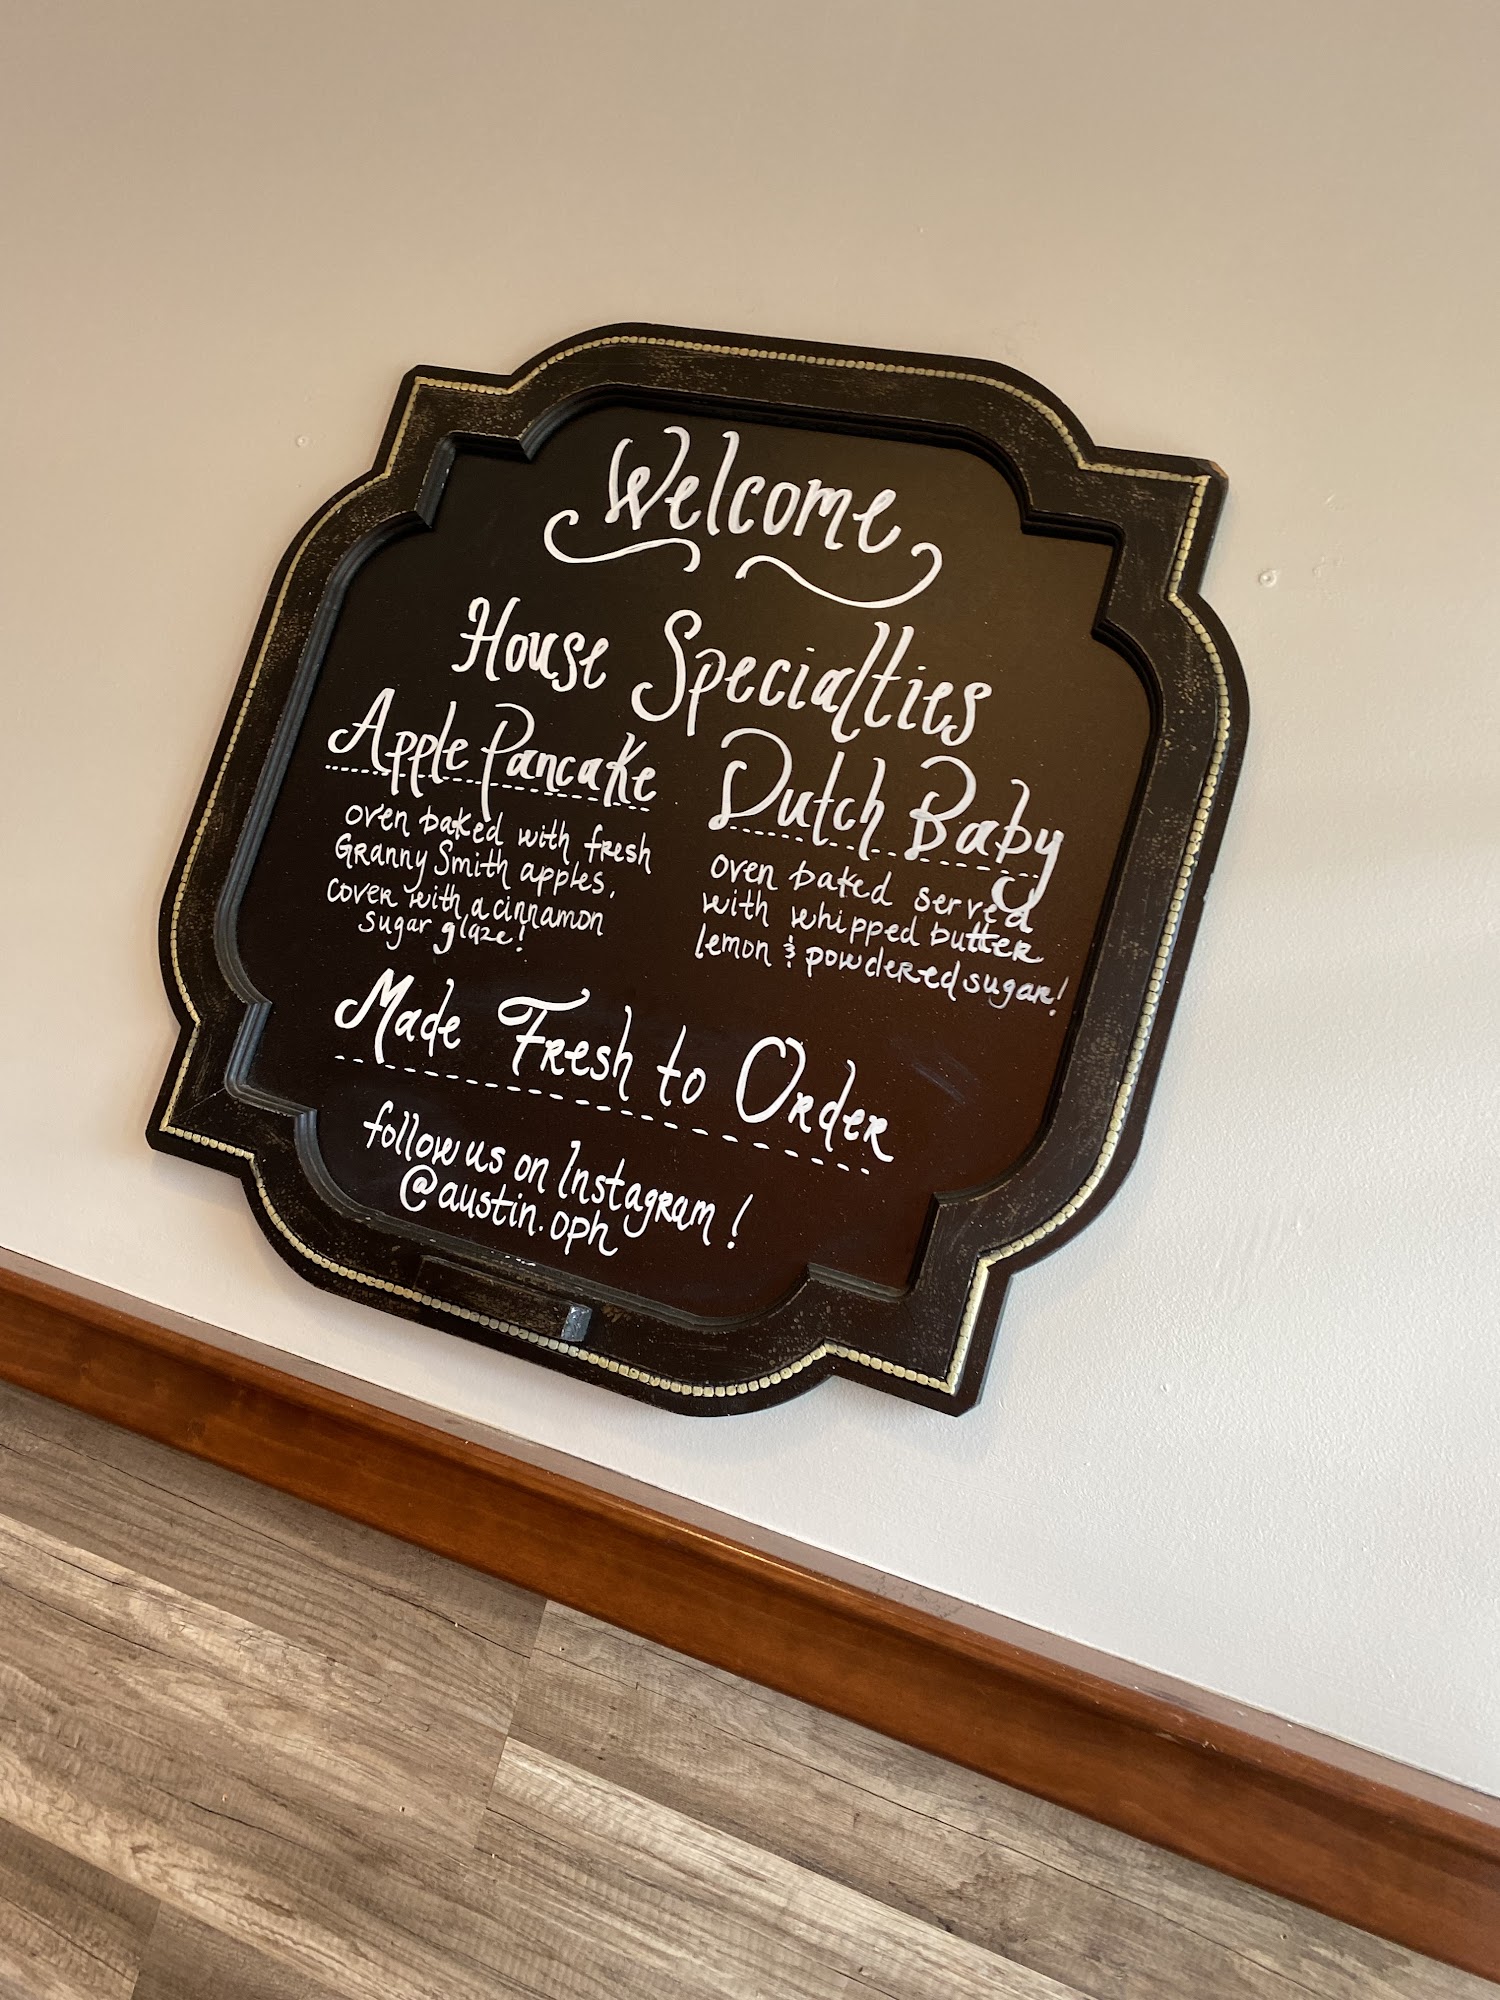 Welcome
House Specialties
Apple Pancake
oven baked with fresh
Granny Smith apples,
cover with a cinnamon
sugar glaze!
Dutch Baby
oven baked served
with whipped butter
lemon & powdered sugar!
Made Fresh to Order
follow us on Instagram!
@austin.oph